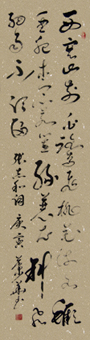 西塞山前白鷺飛桃花流水鱖
魚肥青箬笠綠蓑衣斜風
細雨不須歸 張志和詞 庚寅